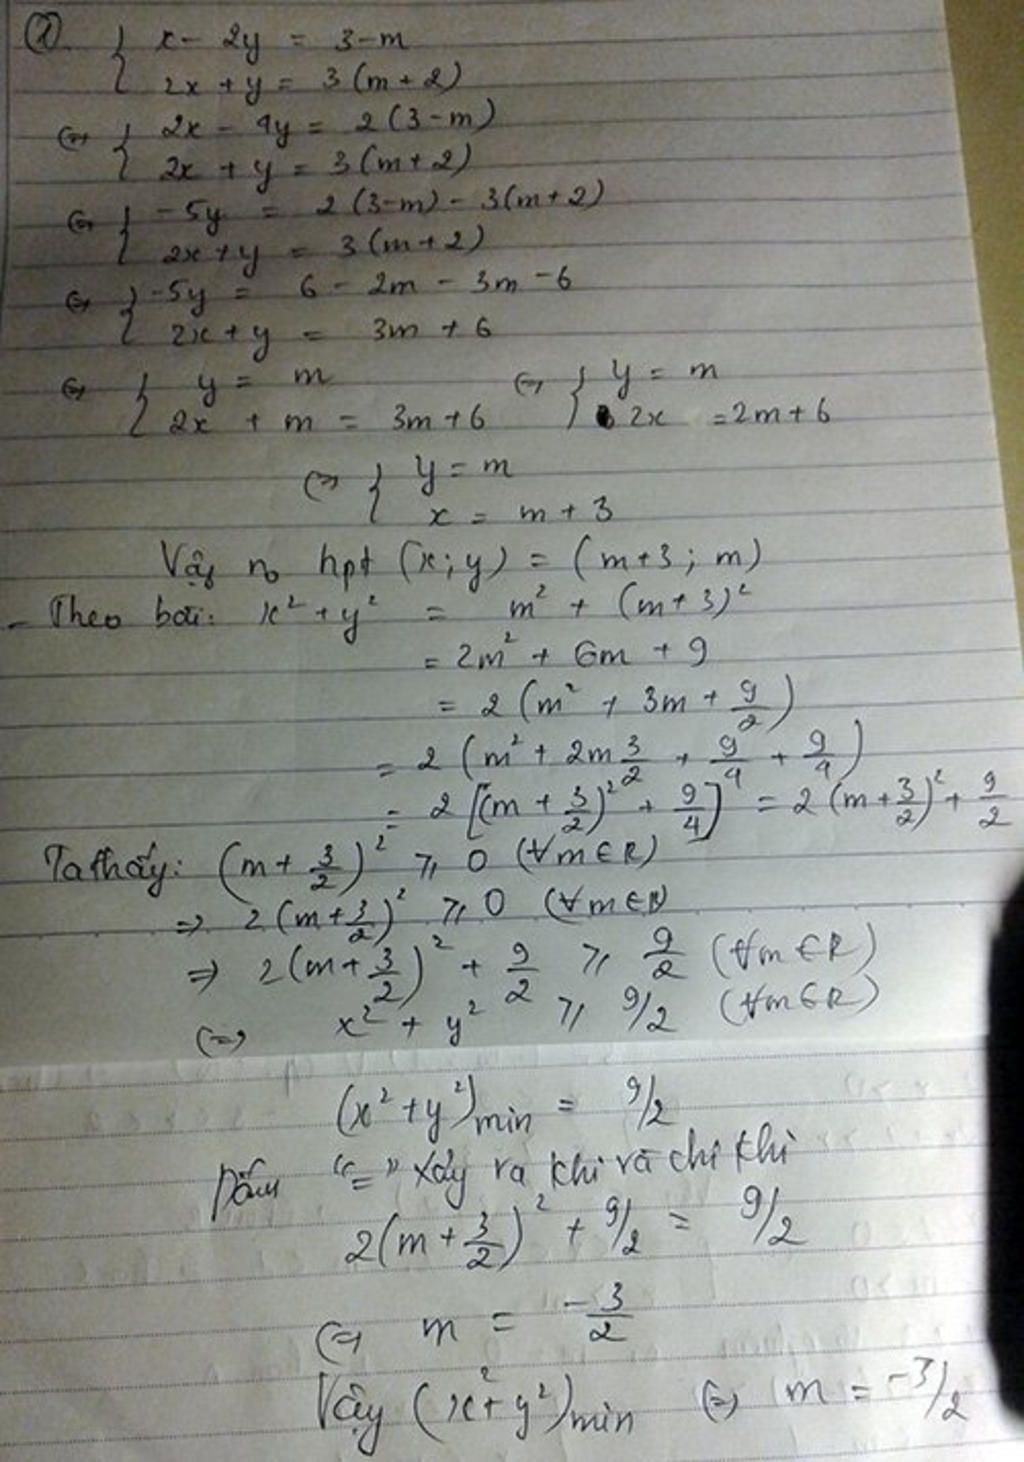 ② { x - 2y = 3-m
2x + y = 3(m+2)
⇔ { 2x - 4y = 2(3-m)
2x + y = 3(m+2)
⇔ { -5y = 2(3-m) - 3(m+2)
2x+y = 3(m+2)
⇔ { -5y = 6 - 2m - 3m - 6
2x+y = 3m + 6
⇔ { y = m ⇔ { y = m
2x + m = 3m+6 2x = 2m+6
⇔ { y = m
x = m + 3
Vậy no hpt (x;y) = (m+3; m)
- Theo bài: x² + y² = m² + (m+3)²
= 2m² + 6m + 9
= 2 (m² + 3m + 9/2)
= 2 (m² + 2m 3/2 + 9/4 + 9/4)
= 2 [(m + 3/2)² + 9/4] = 2 (m+3/2)² + 9/2
Ta thấy: (m + 3/2)² ⩾ 0 (∀m∈R)
⇒ 2(m+3/2)² ⩾ 0 (∀m∈R)
⇒ 2(m+3/2)² + 9/2 ⩾ 9/2 (∀m∈R)
⇔ x² + y² ⩾ 9/2 (∀m∈R)
(x²+y²)min = 9/2
Dấu "=" xảy ra khi và chỉ khi
2(m+3/2)² + 9/2 = 9/2
⇔ m = -3/2
Vậy (x²+y²)min ⇔ m = -3/2